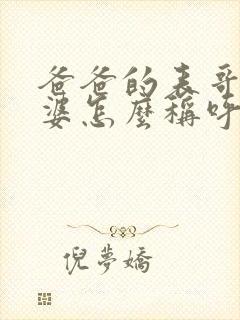 爸爸的表哥
婆怎麼稱呼
倪夢嬌